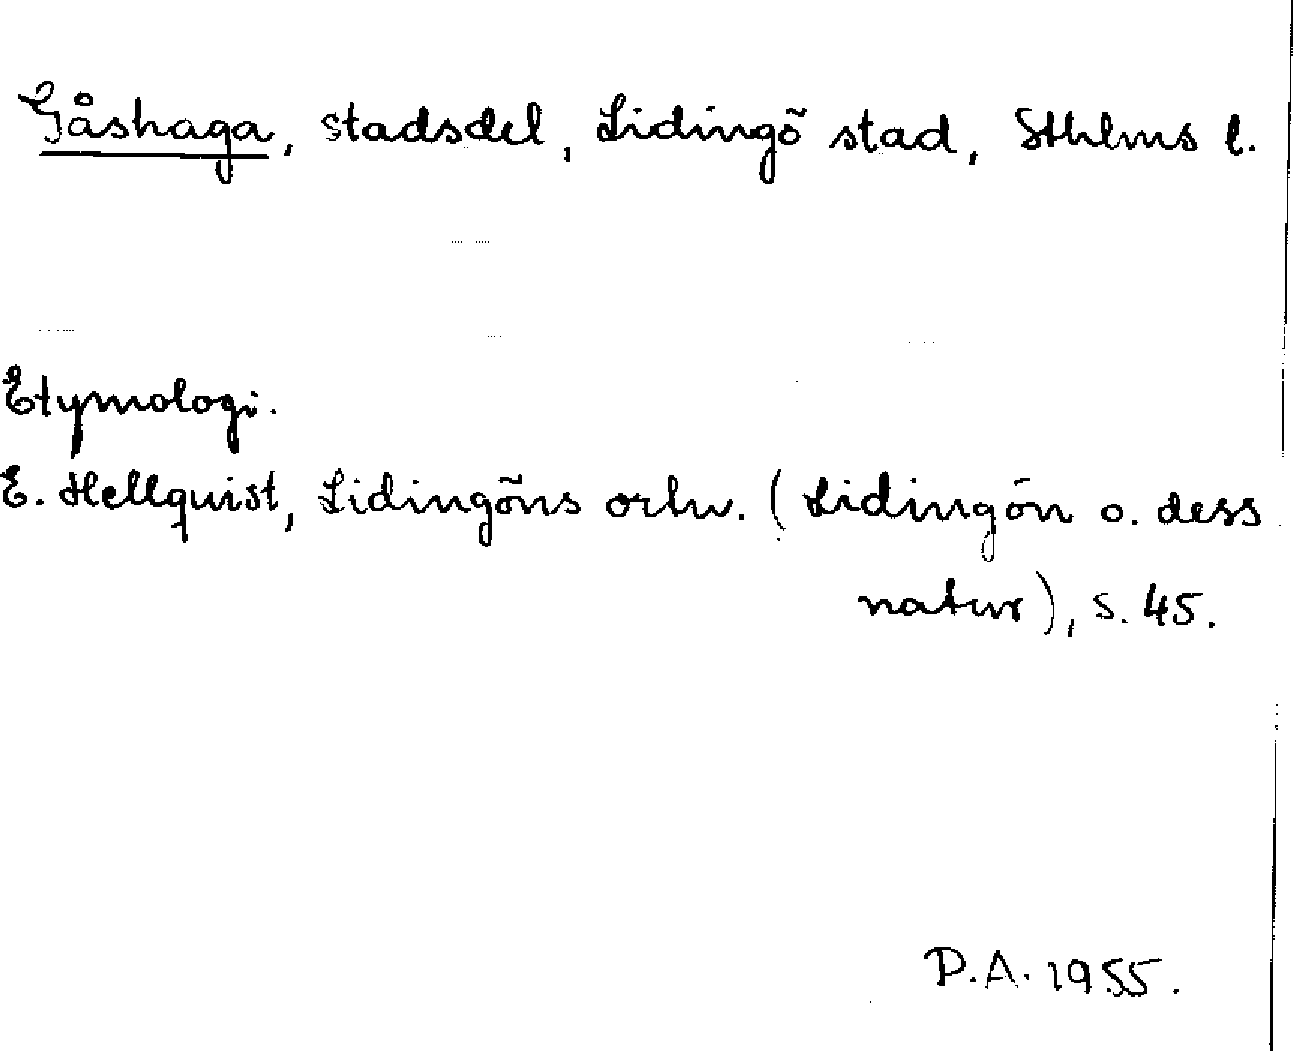 Gåshaga, stadsdel, Lidingö stad, Sthlms l.
Etymologi.
E. Hellquist, Lidingöns ortn. (Lidingön o. dess
natur), s. 45.
P.A. 1955.